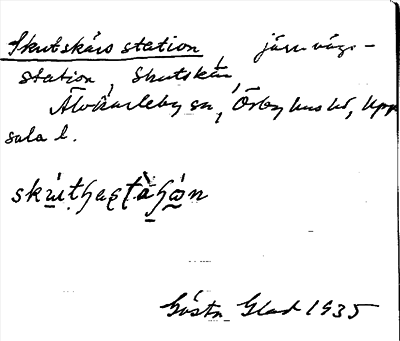 Skutskärs station, järnvägs-
station, Skutskär,
Älvkarleby sn, Örbyhus hd, Upp
sala l.
Gösta Glad 1935